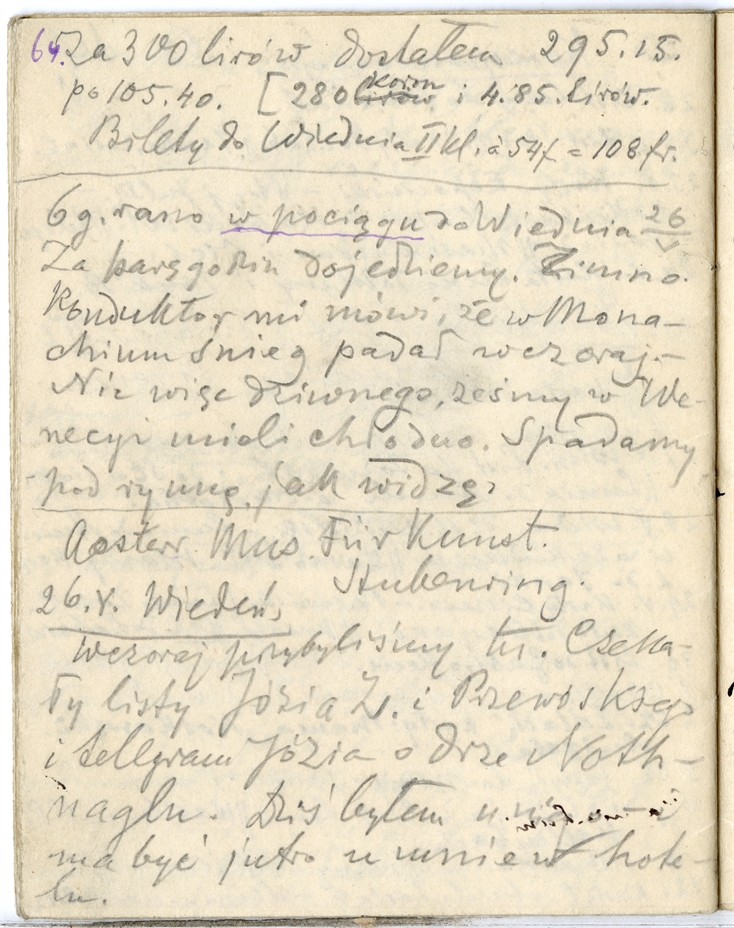 64. Za 300 lirów dostałem 295.15.
po 105.40. [280 koron lirów i 4.85. Lirów.
Bilety do Wiednia II kl. à 54f = 108 fr.
6 g. rano w pociągu do Wiednia 26
V
Za parę godzin dojedziemy. Zimno.
Konduktor mi mówi, że w Mona-
chium śnieg padał wczoraj.–
Nic więc dziwnego, żeśmy w We-
necyi mieli chłodno. Spadamy
pod rynnę, jak widzę.
Aosterr. Mus. Für Kunst.
Stubenring.
26.V. Wiedeń.
Wczoraj przybyliśmy tu. Czeka-
ły listy Józia Z. i Przewóskiego
i telegram Józia o drze Noth-
naglu. Dziś byłem u niego i
ma być jutro u mnie w hote-
lu.